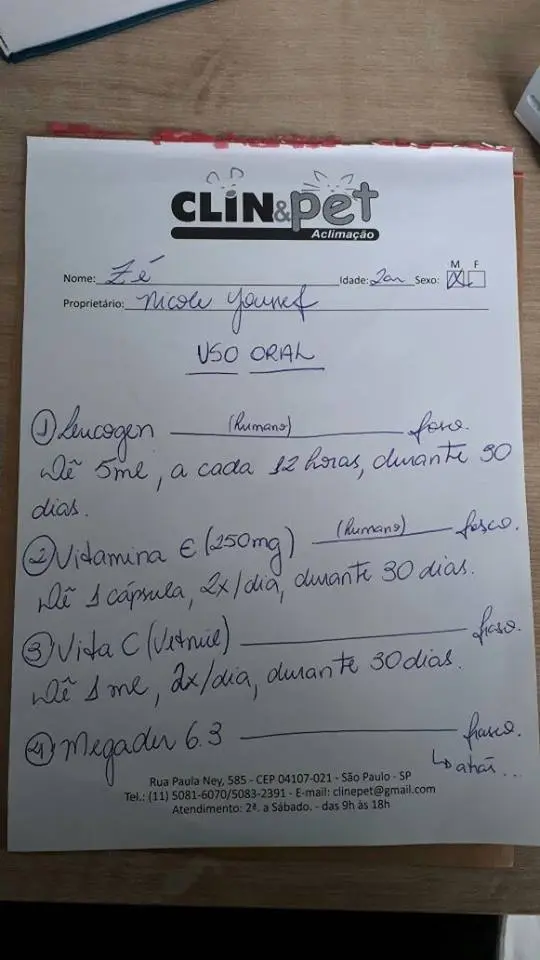 CLIN&pet
Aclimação
M F
Nome: Zé Idade: 2an Sexo: X
Proprietário: Nicole Younef
USO ORAL
① Leucogen (humano) frasco.
Dê 5ml, a cada 12 horas, durante 30
dias.
② Vitamina E (250mg) (humano) frasco.
Dê 1 cápsula, 2x/dia, durante 30 dias.
③ Vita C (Vetnil) frasco.
Dê 1 ml, 2x/dia, durante 30 dias.
④ Megader 6.3 frasco.
↳ atrás...
Rua Paula Ney, 585 - CEP 04107-021 - São Paulo - SP
Tel.: (11) 5081-6070/5083-2391 - E-mail: clinepet@gmail.com
Atendimento: 2ª. a Sábado. - das 9h às 18h